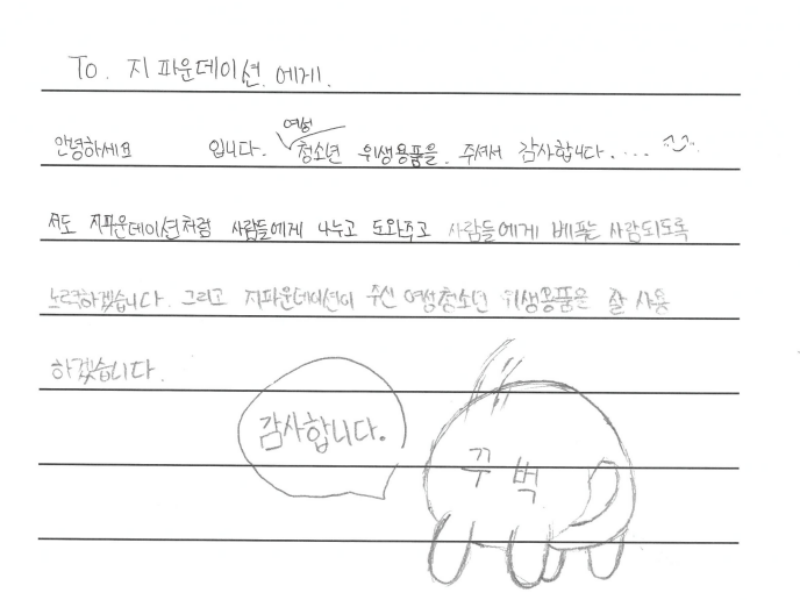 To. 지파운데이션 에게.
안녕하세요 입니다. 여성 청소년 위생용품을 주셔서 감사합니다....
저도 지파운데이션처럼 사람들에게 나누고 도와주고 사람들에게 베푸는 사람되도록
노력하겠습니다. 그리고 지파운데이션이 주신 여성청소년 위생용품을 잘 사용
하겠습니다.
감사합니다.
꾸벅